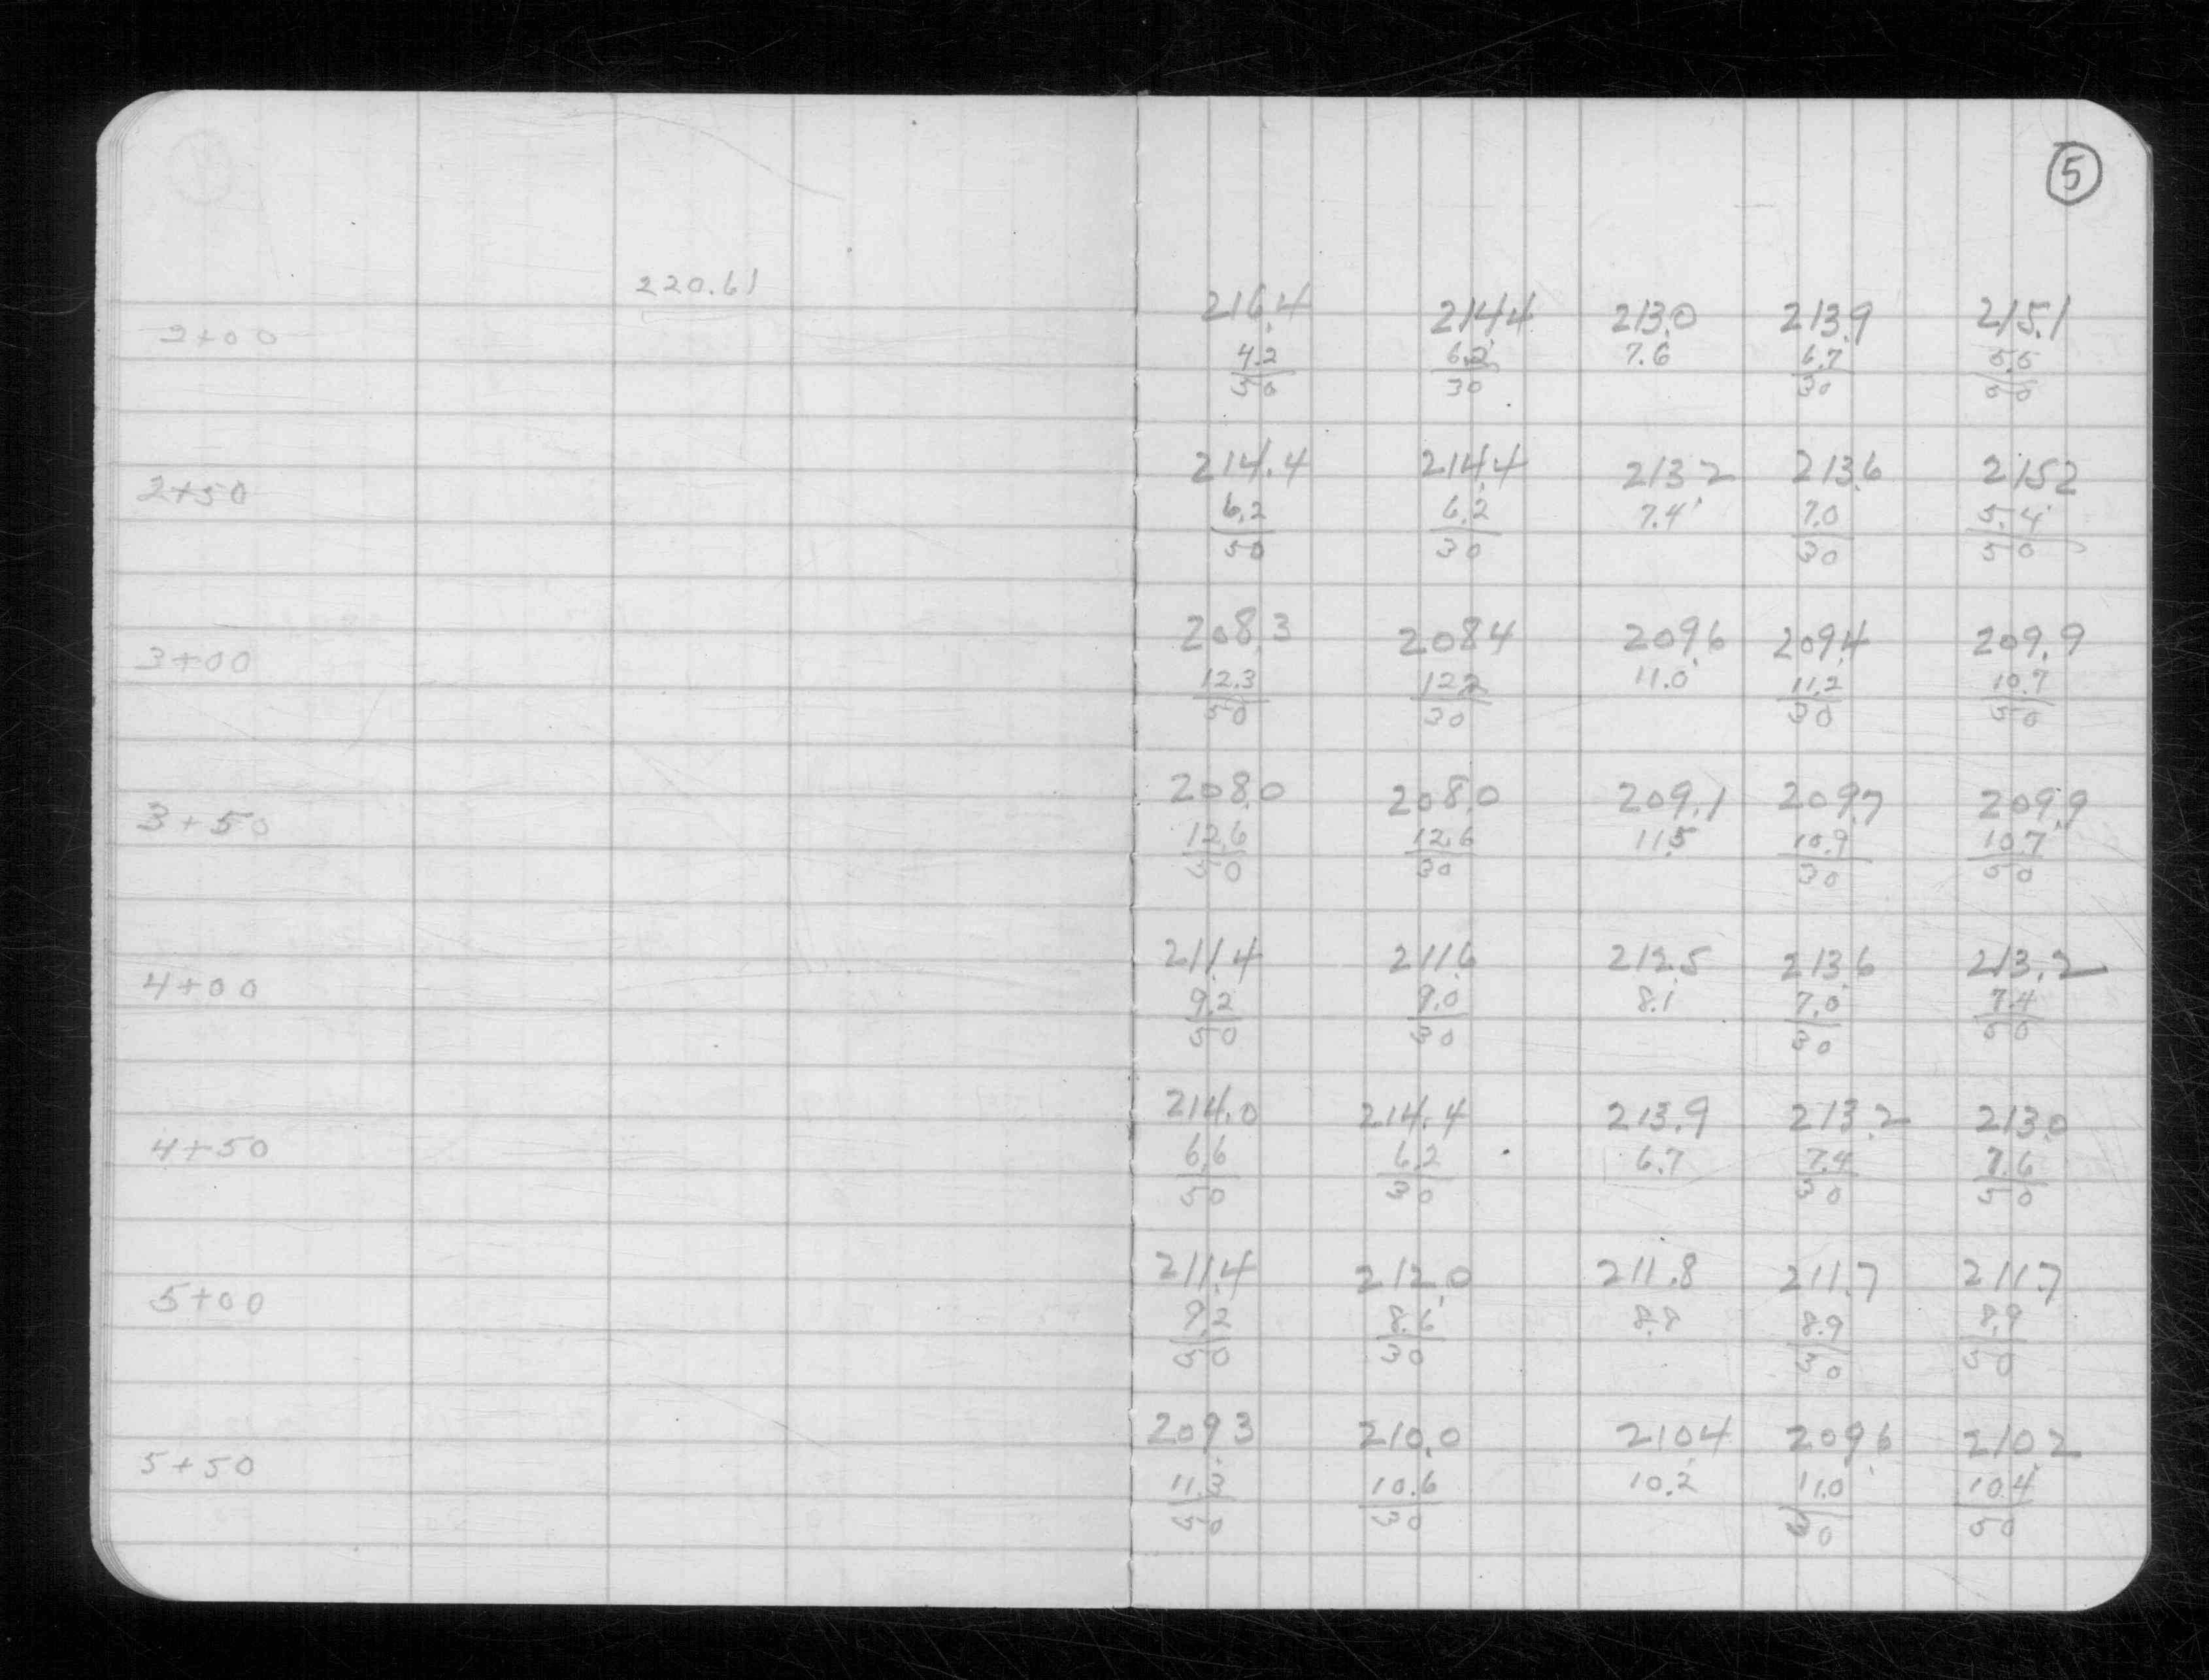 5
220.61
2+00 216.4 214.4 213.0 213.9 215.1
4.2 6.2 7.6 6.7 5.5
50 30 30 50
2+50 214.4 214.4 213.2 213.6 215.2
6.2 6.2 7.4 7.0 5.4
50 30 30 50
3+00 208.3 208.4 209.6 209.4 209.9
12.3 12.2 11.0 11.2 10.7
50 30 30 50
3+50 208.0 208.0 209.1 209.7 209.9
12.6 12.6 11.5 10.9 10.7
50 30 30 50
4+00 211.4 211.6 212.5 213.6 213.2
9.2 9.0 8.1 7.0 7.4
50 30 30 50
4+50 214.0 214.4 213.9 213.2 213.0
6.6 6.2 6.7 7.4 7.6
50 30 30 50
5+00 211.4 212.0 211.8 211.7 211.7
9.2 8.6 8.8 8.9 8.9
50 30 30 50
5+50 209.3 210.0 210.4 209.6 210.2
11.3 10.6 10.2 11.0 10.4
50 30 30 50